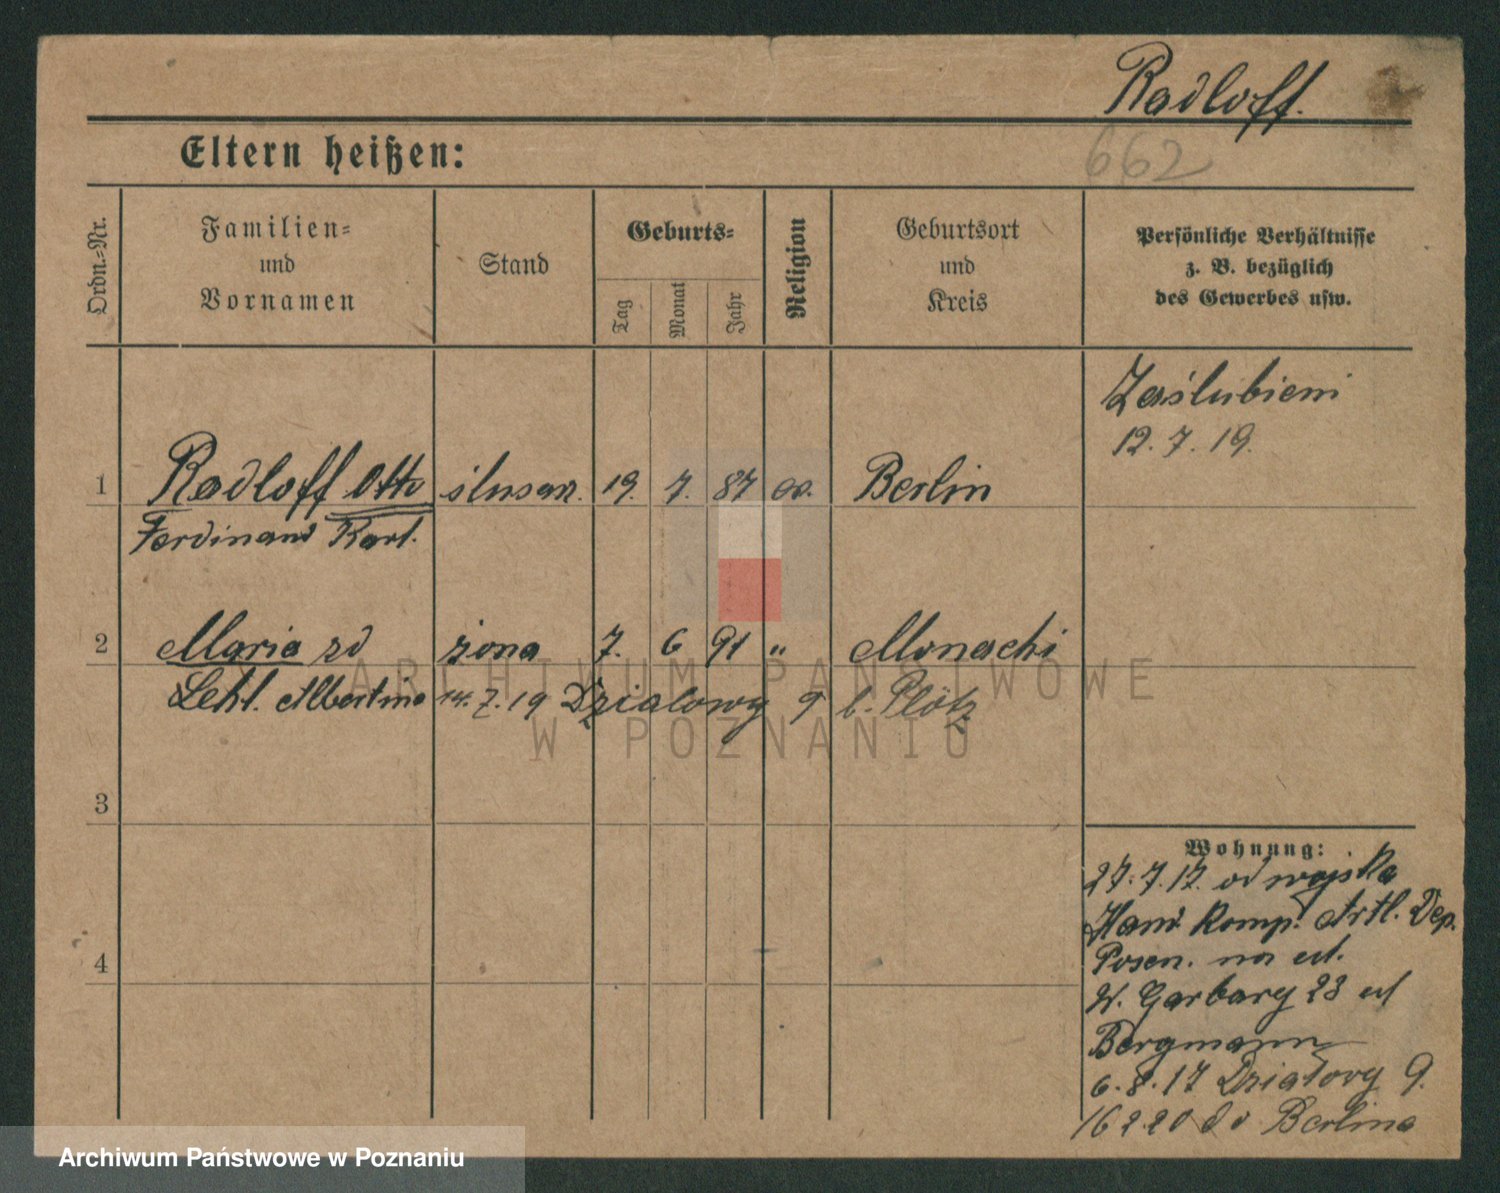 Radloff.
662
Eltern heißen:
Ordn.-Nr.
Familien-
und
Vornamen
Stand
Geburts-
Tag
Monat
Jahr
Religion
Geburtsort
und
Kreis
Persönliche Verhältnisse
z. B. bezüglich
des Gewerbes usw.
Zaślubieni
12. 7. 19.
1 Radloff Otto ślusarz. 19. 7. 87 Berlin
Ferdinand Karl.
2 Maria zd żona 7. 6 91 " Monachi
Lehl. Albertina 14. 7. 19 Działowy 9 b. Plötz
3
4
Wohnung:
27. 7. 17. od wojska
Hand Komp. Artl. Dep.
Posen. na
W. Garbary 23
Bergmann
6. 8. 17 Działowy 9.
16 2 20 do Berlina
ARCHIWUM PAŃSTWOWE
W POZNANIU
Archiwum Państwowe w Poznaniu